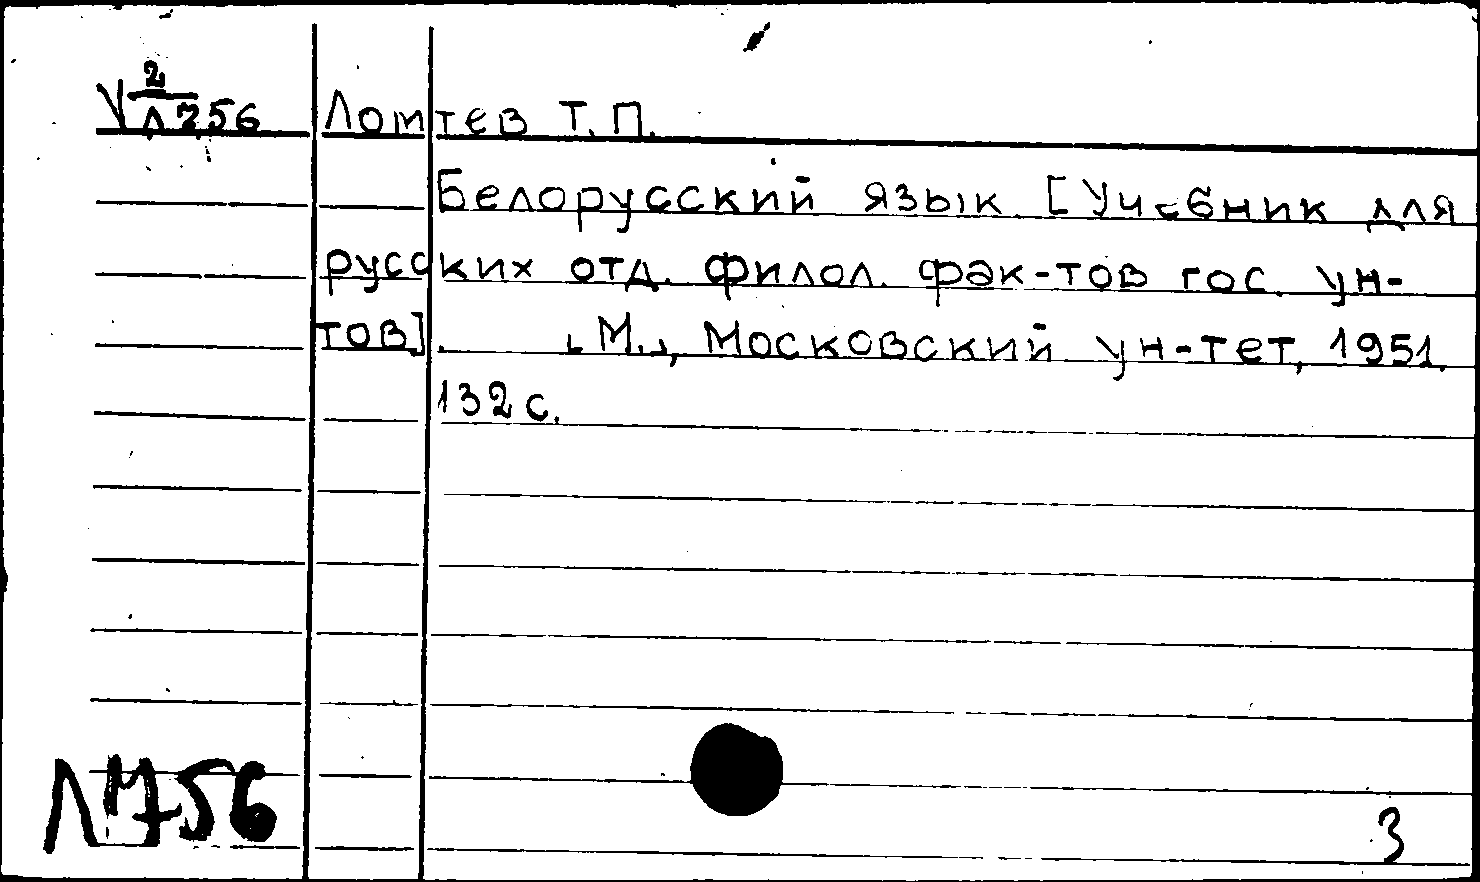 V 2
Л756
Ломтев Т.П.
Белорусский язык. [Учебник для
русских отд. филол. фак-тов гос. ун-
тов]. [М.], Московский ун-тет, 1951.
132 с.
Л756
3